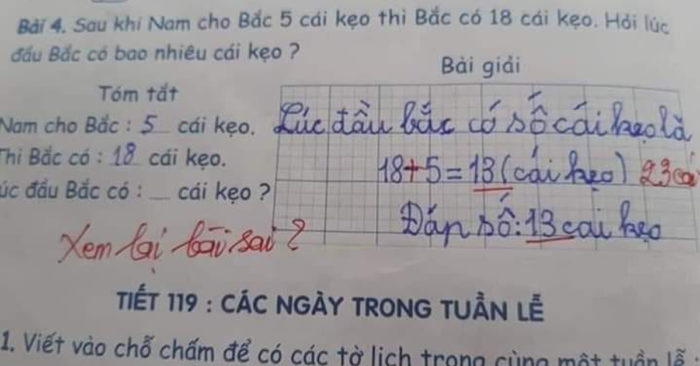 Bài 4. Sau khi Nam cho Bắc 5 cái kẹo thì Bắc có 18 cái kẹo. Hỏi lúc
đầu Bắc có bao nhiêu cái kẹo ?
Bài giải
Tóm tắt
Nam cho Bắc : 5 cái kẹo.
Thì Bắc có : 18 cái kẹo.
úc đầu Bắc có : __ cái kẹo ?
Lúc đầu bắc có số cái kẹo là
18+5=13(cái kẹo) 23cá
Đáp số: 13 cai kẹo
Xem lại bài sai ?
TIẾT 119 : CÁC NGÀY TRONG TUẦN LỄ
1. Viết vào chỗ chấm để có các tờ lịch trong cùng một tuần lễ :